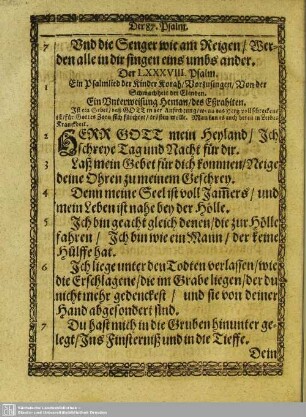 Der 87. Psalm.
7 Vnd die Senger wie am Reigen / Wer-
den alle in dir singen eins umbs ander.
Der LXXXVIII. Psalm.
1 Ein Psalmlied der Kinder Korah / Vorzusingen / Von der
Schwachheit der Elenden.
Ein Vnterweisung Heman / des Esrahiten.
Ist ein Gebet / daß GOTT in der Anfechtung /
für Gottes Zorn sich fürchtet / trösten wolle. Man kan es auch beten in Leibes
Kranckheit.
2 HERR GOTT mein Heyland / Ich
schreye Tag und Nacht für dir.
3 Laß mein Gebet für dich kommen / Neige
deine Ohren zu meinem Geschrey.
4 Denn meine Seel ist voll Jam̃ers / und
mein Leben ist nahe bey der Hölle.
5 Ich bin geacht gleich denen / die zur Hölle
fahren / Ich bin wie ein Mann / der keine
Hülffe hat.
6 Ich liege unter den Todten verlassen / wie
die Erschlagene / die im Grabe liegen / der du
nicht mehr gedenckest / und sie von deiner
Hand abgesondert sind.
7 Du hast mich in die Gruben hinunter ge-
legt / Ins Finsterniß und in die Tieffe.
Dein